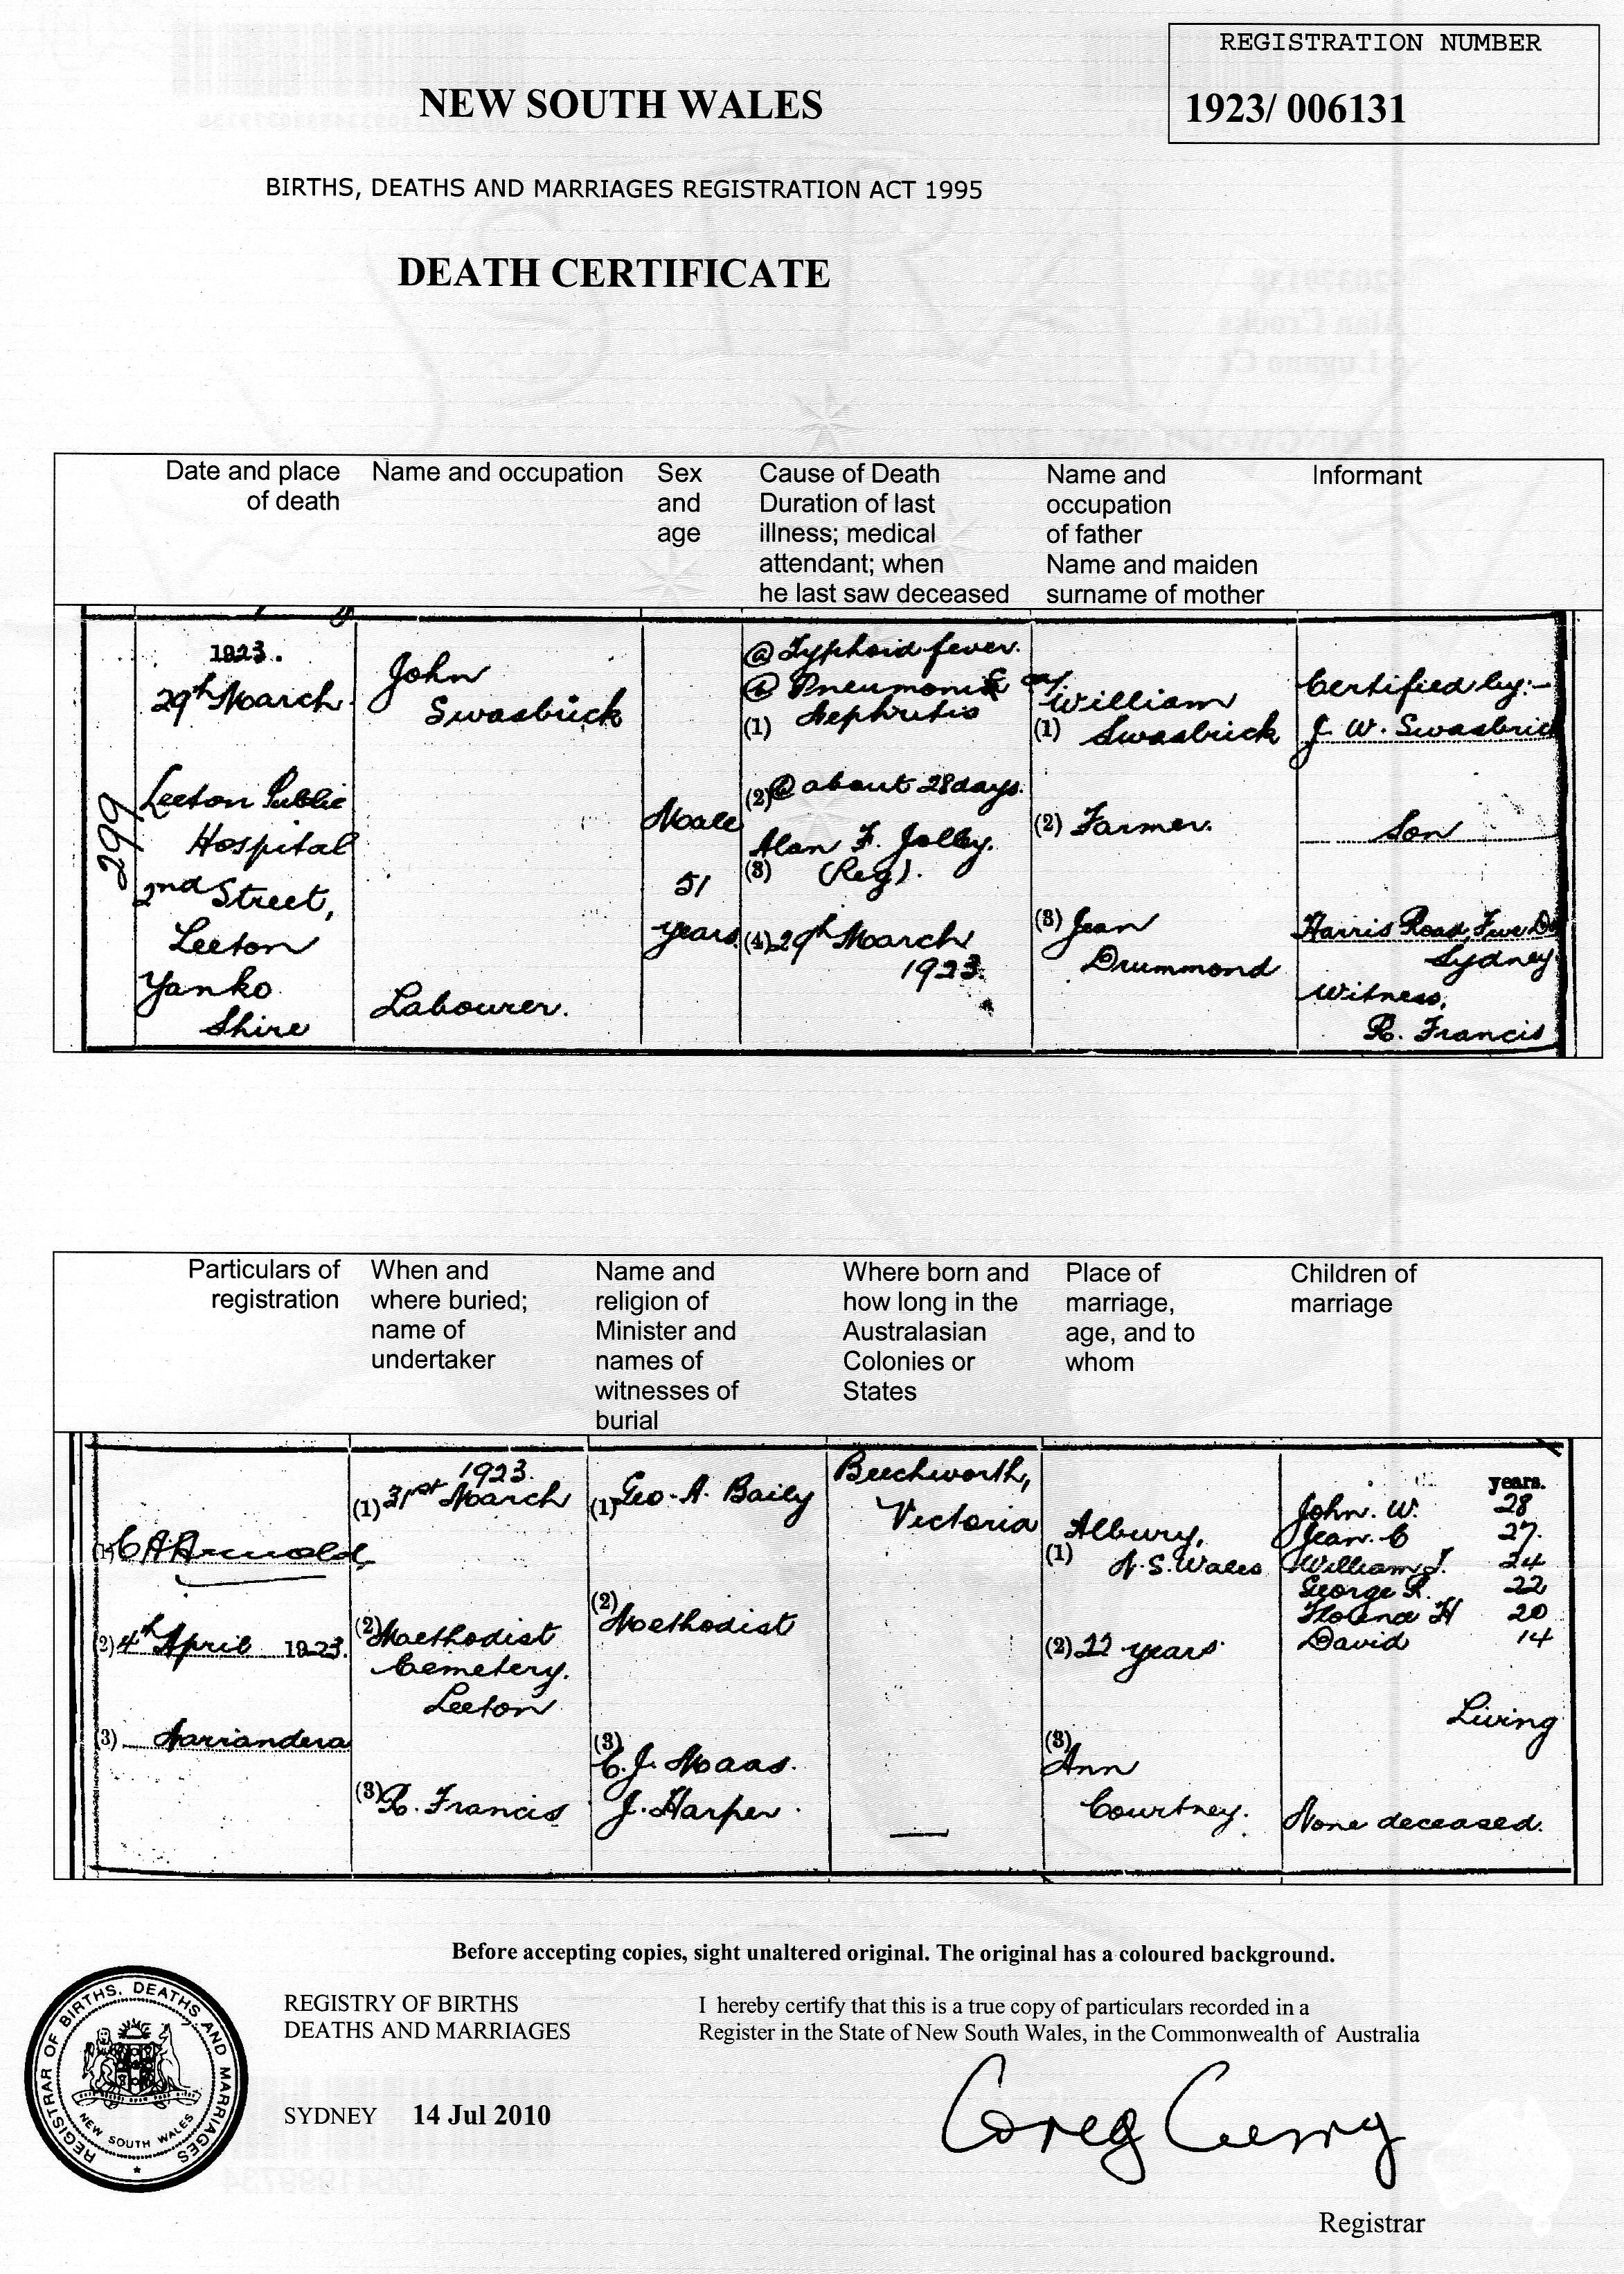 REGISTRATION NUMBER
1923/ 006131
NEW SOUTH WALES
BIRTHS, DEATHS AND MARRIAGES REGISTRATION ACT 1995
DEATH CERTIFICATE
Date and place
of death
Name and occupation
Sex
and
age
Cause of Death
Duration of last
illness; medical
attendant; when
he last saw deceased
Name and
occupation
of father
Name and maiden
surname of mother
Informant
299
1923.
29th March
Leeton Public
Hospital
2nd Street,
Leeton
Yanko
Shire
John
Swasbrick
Labourer.
Male
51
years
@ Typhoid fever.
Pneumonia
(1) Nephritis
(2) @ about 28 days.
Alan F. Jolley.
(3) (Reg).
(4) 29th March
1923.
William
(1) Swasbrick
(2) Farmer.
(3) Jean
Drummond
Certified by:-
J. W. Swasbrick
Son
Harris Road, Five Do
Sydney
Witness,
R. Francis
Particulars of
registration
When and
where buried;
name of
undertaker
Name and
religion of
Minister and
names of
witnesses of
burial
Where born and
how long in the
Australasian
Colonies or
States
Place of
marriage,
age, and to
whom
Children of
marriage
(1) C A Arnold
(2) 4th April 1923.
(3) Narrandera
1923.
(1) 31st March
(2) Methodist
Cemetery.
Leeton
(3) R. Francis
(1) Geo. A. Baily
(2) Methodist
(3) C. J. Maas.
J. Harper.
Beechworth,
Victoria
Albury,
(1) N. S. Wales
(2) 22 years
(3) Ann
Courtney.
years.
John. W. 28
Jean. C 27.
William J. 24
George R. 22
Florence H 20
David 14
Living
None deceased.
Before accepting copies, sight unaltered original. The original has a coloured background.
REGISTRAR OF BIRTHS, DEATHS AND MARRIAGES
NEW SOUTH WALES
REGISTRY OF BIRTHS
DEATHS AND MARRIAGES
SYDNEY 14 Jul 2010
I hereby certify that this is a true copy of particulars recorded in a
Register in the State of New South Wales, in the Commonwealth of Australia
Greg Curry
Registrar